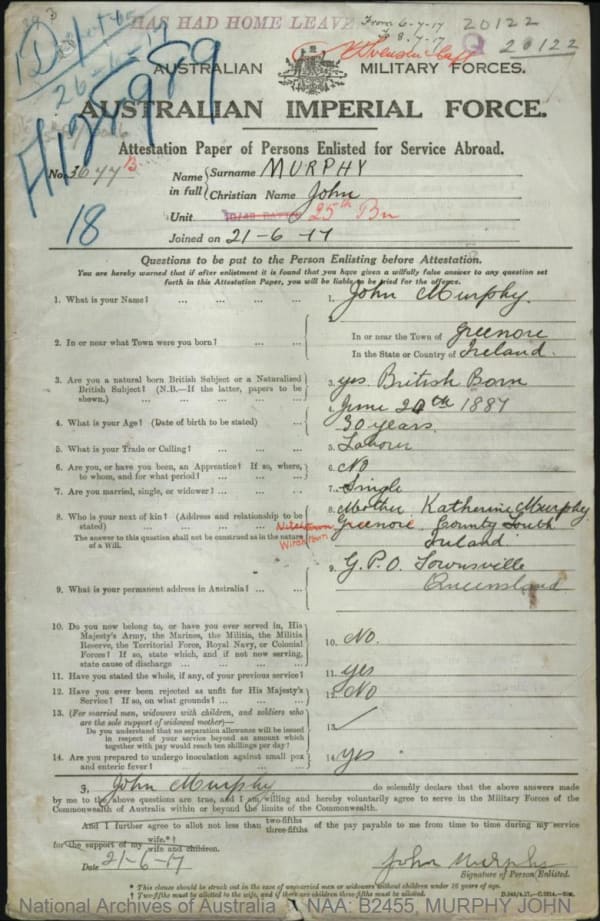 HAS HAD HOME LEAVE From 6-4-17 20122
8.4.17 Q 20122
AUSTRALIAN MILITARY FORCES.
AUSTRALIAN IMPERIAL FORCE.
Attestation Paper of Persons Enlisted for Service Abroad.
H125989
18
No. 3677 B
Name in full { Surname MURPHY
Christian Name John
Unit 25th Bn
Joined on 21-6-17
Questions to be put to the Person Enlisting before Attestation.
You are hereby warned that if after enlistment it is found that you have given a wilfully false answer to any question set
forth in this Attestation Paper, you will be liable to be tried for the offence.
1. What is your Name? ... ... ... 1. John Murphy.
2. In or near what Town were you born? ... ... 2. In or near the Town of Greenore
In the State or Country of Ireland.
3. Are you a natural born British Subject or a Naturalised
British Subject? (N.B.—If the latter, papers to be
shown.) ... ... ... ... 3. yes. British Born
4. What is your Age? (Date of birth to be stated) ... 4. June 24th 1887
30 years.
5. What is your Trade or Calling? ... ... ... 5. Labourer
6. Are you, or have you been, an Apprentice? If so, where,
to whom, and for what period? ... ... ... 6. No
7. Are you married, single, or widower? ... ... ... 7. Single
8. Who is your next of kin? (Address and relationship to be
stated) ... ... ... ...
The answer to this question shall not be construed as in the nature
of a Will.
8. Mother Katherine Murphy
Greenore County Louth
Ireland.
9. What is your permanent address in Australia? ... ... 9. G.P.O. Townsville
Queensland
10. Do you now belong to, or have you ever served in, His
Majesty's Army, the Marines, the Militia, the Militia
Reserve, the Territorial Force, Royal Navy, or Colonial
Forces? If so, state which, and if not now serving,
state cause of discharge ... ... ... 10. No.
11. Have you stated the whole, if any, of your previous service? 11. yes
12. Have you ever been rejected as unfit for His Majesty's
Service? If so, on what grounds? ... ... ... 12. No
13. (For married men, widowers with children, and soldiers who
are the sole support of widowed mother)—
Do you understand that no separation allowance will be issued
in respect of your service beyond an amount which
together with pay would reach ten shillings per day? 13. ✓
14. Are you prepared to undergo inoculation against small pox
and enteric fever? ... ... ... ... 14. yes
I, John Murphy do solemnly declare that the above answers made
by me to the above questions are true, and I am willing and hereby voluntarily agree to serve in the Military Forces of the
Commonwealth of Australia within or beyond the limits of the Commonwealth.
And I further agree to allot not less than two-fifths three-fifths of the pay payable to me from time to time during my service
for the support of my wife.*† wife and children.
Date 21-6-17 John Murphy
Signature of Person Enlisted.
* This clause should be struck out in the case of unmarried men or widowers without children under 16 years of age.
† Two-fifths must be allotted to the wife, and if there are children three-fifths must be allotted.
National Archives of Australia NAA: B2455, MURPHY JOHN